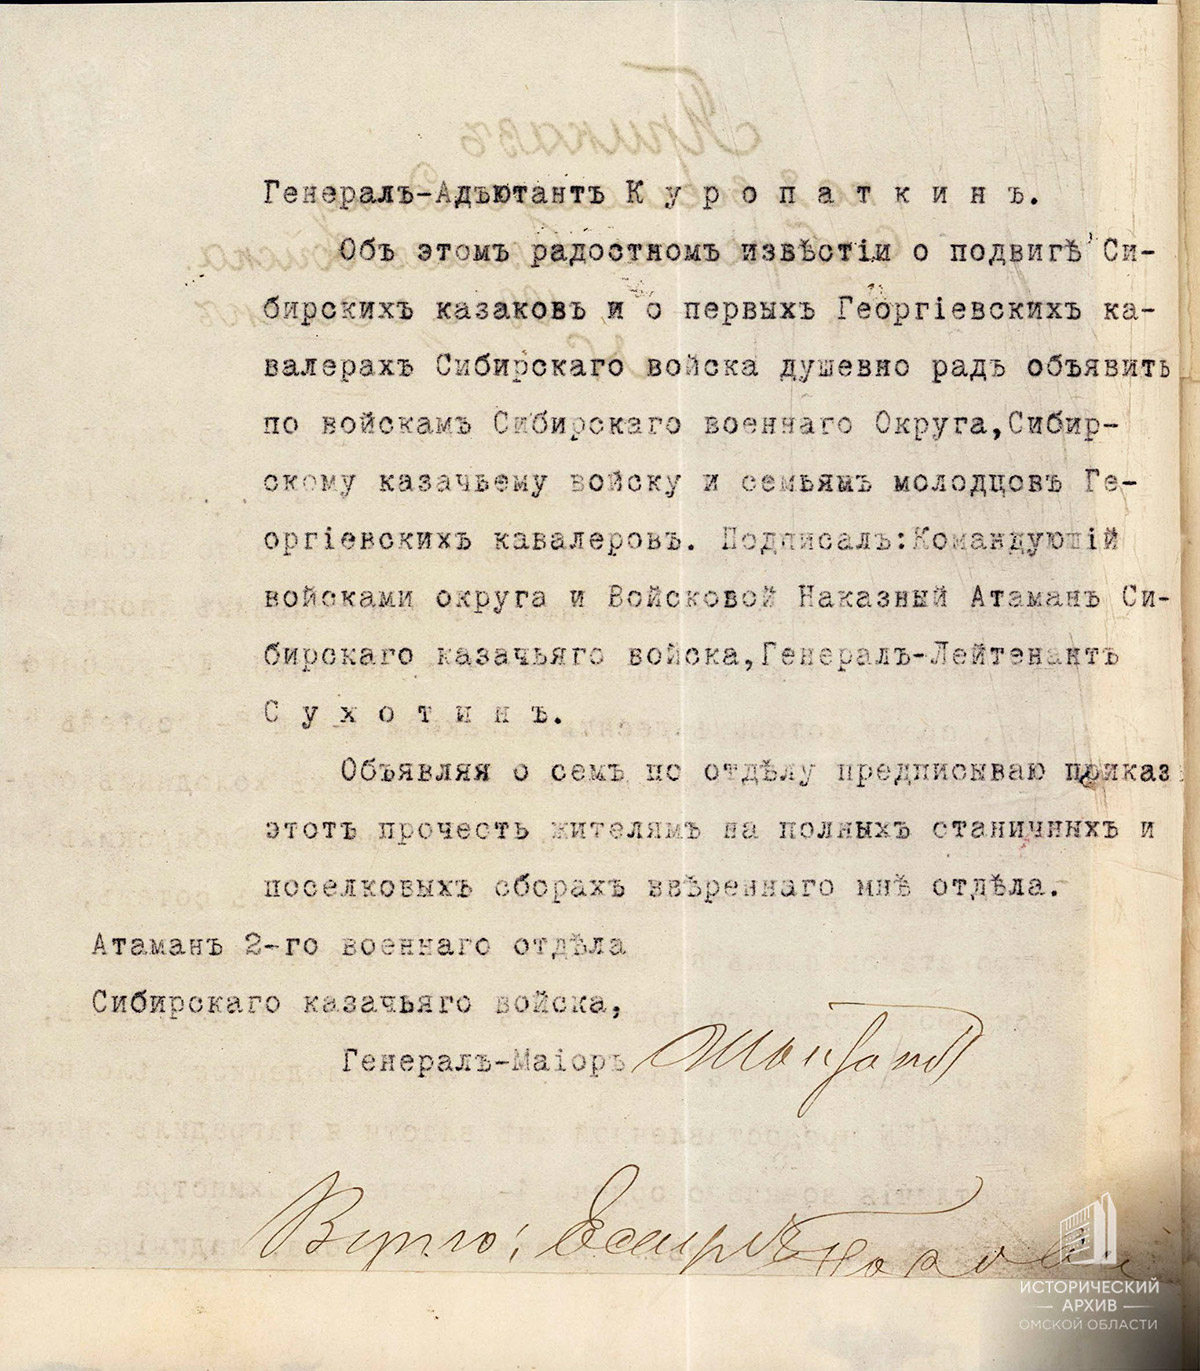 Генералъ-Адъютантъ К у р о п а т к и н ъ.
Объ этомъ радостномъ извѣстіи о подвигѣ Си-
бирскихъ казаковъ и о первыхъ Георгіевскихъ ка-
валерахъ Сибирскаго войска душевно радъ объявить
по войскамъ Сибирскаго военнаго Округа,Сибир-
скому казачьему войску и семьямъ молодцовъ Ге-
оргіевскихъ кавалеровъ. Подписалъ:Командующій
войсками округа и Войсковой Наказный Атаманъ Си-
бирскаго казачьяго войска,Генералъ-Лейтенантъ
С у х о т и н ъ.
Объявляя о семъ по отдѣлу предписываю приказ
этотъ прочесть жителямъ на полныхъ станичныхъ и
поселковыхъ сборахъ ввѣреннаго мнѣ отдѣла.
Атаманъ 2-го военнаго отдѣла
Сибирскаго казачьяго войска,
Генералъ-Маіоръ
Вѣрно: Есаулъ
ИСТОРИЧЕСКИЙ
АРХИВ
ОМСКОЙ ОБЛАСТИ